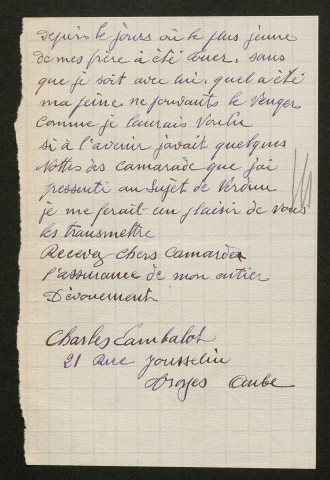 Depuis le Jours où le plus jeune
de mes frère à été tuer. sans
que je soit avec lui. quel a été
ma peine. ne pouvants le venger
comme je laurais Voulu
si à l'avenir j'avait quelques
Nottes des camarade que j'ai
pressenti au sujet de Verdun
je me ferait un plaisir de vous
les transmettre
Recevez chers Camarades
l'assurance de mon entier
Dévouement
Charles Lambalot
21 Rue Jousselin
Troyes Aube